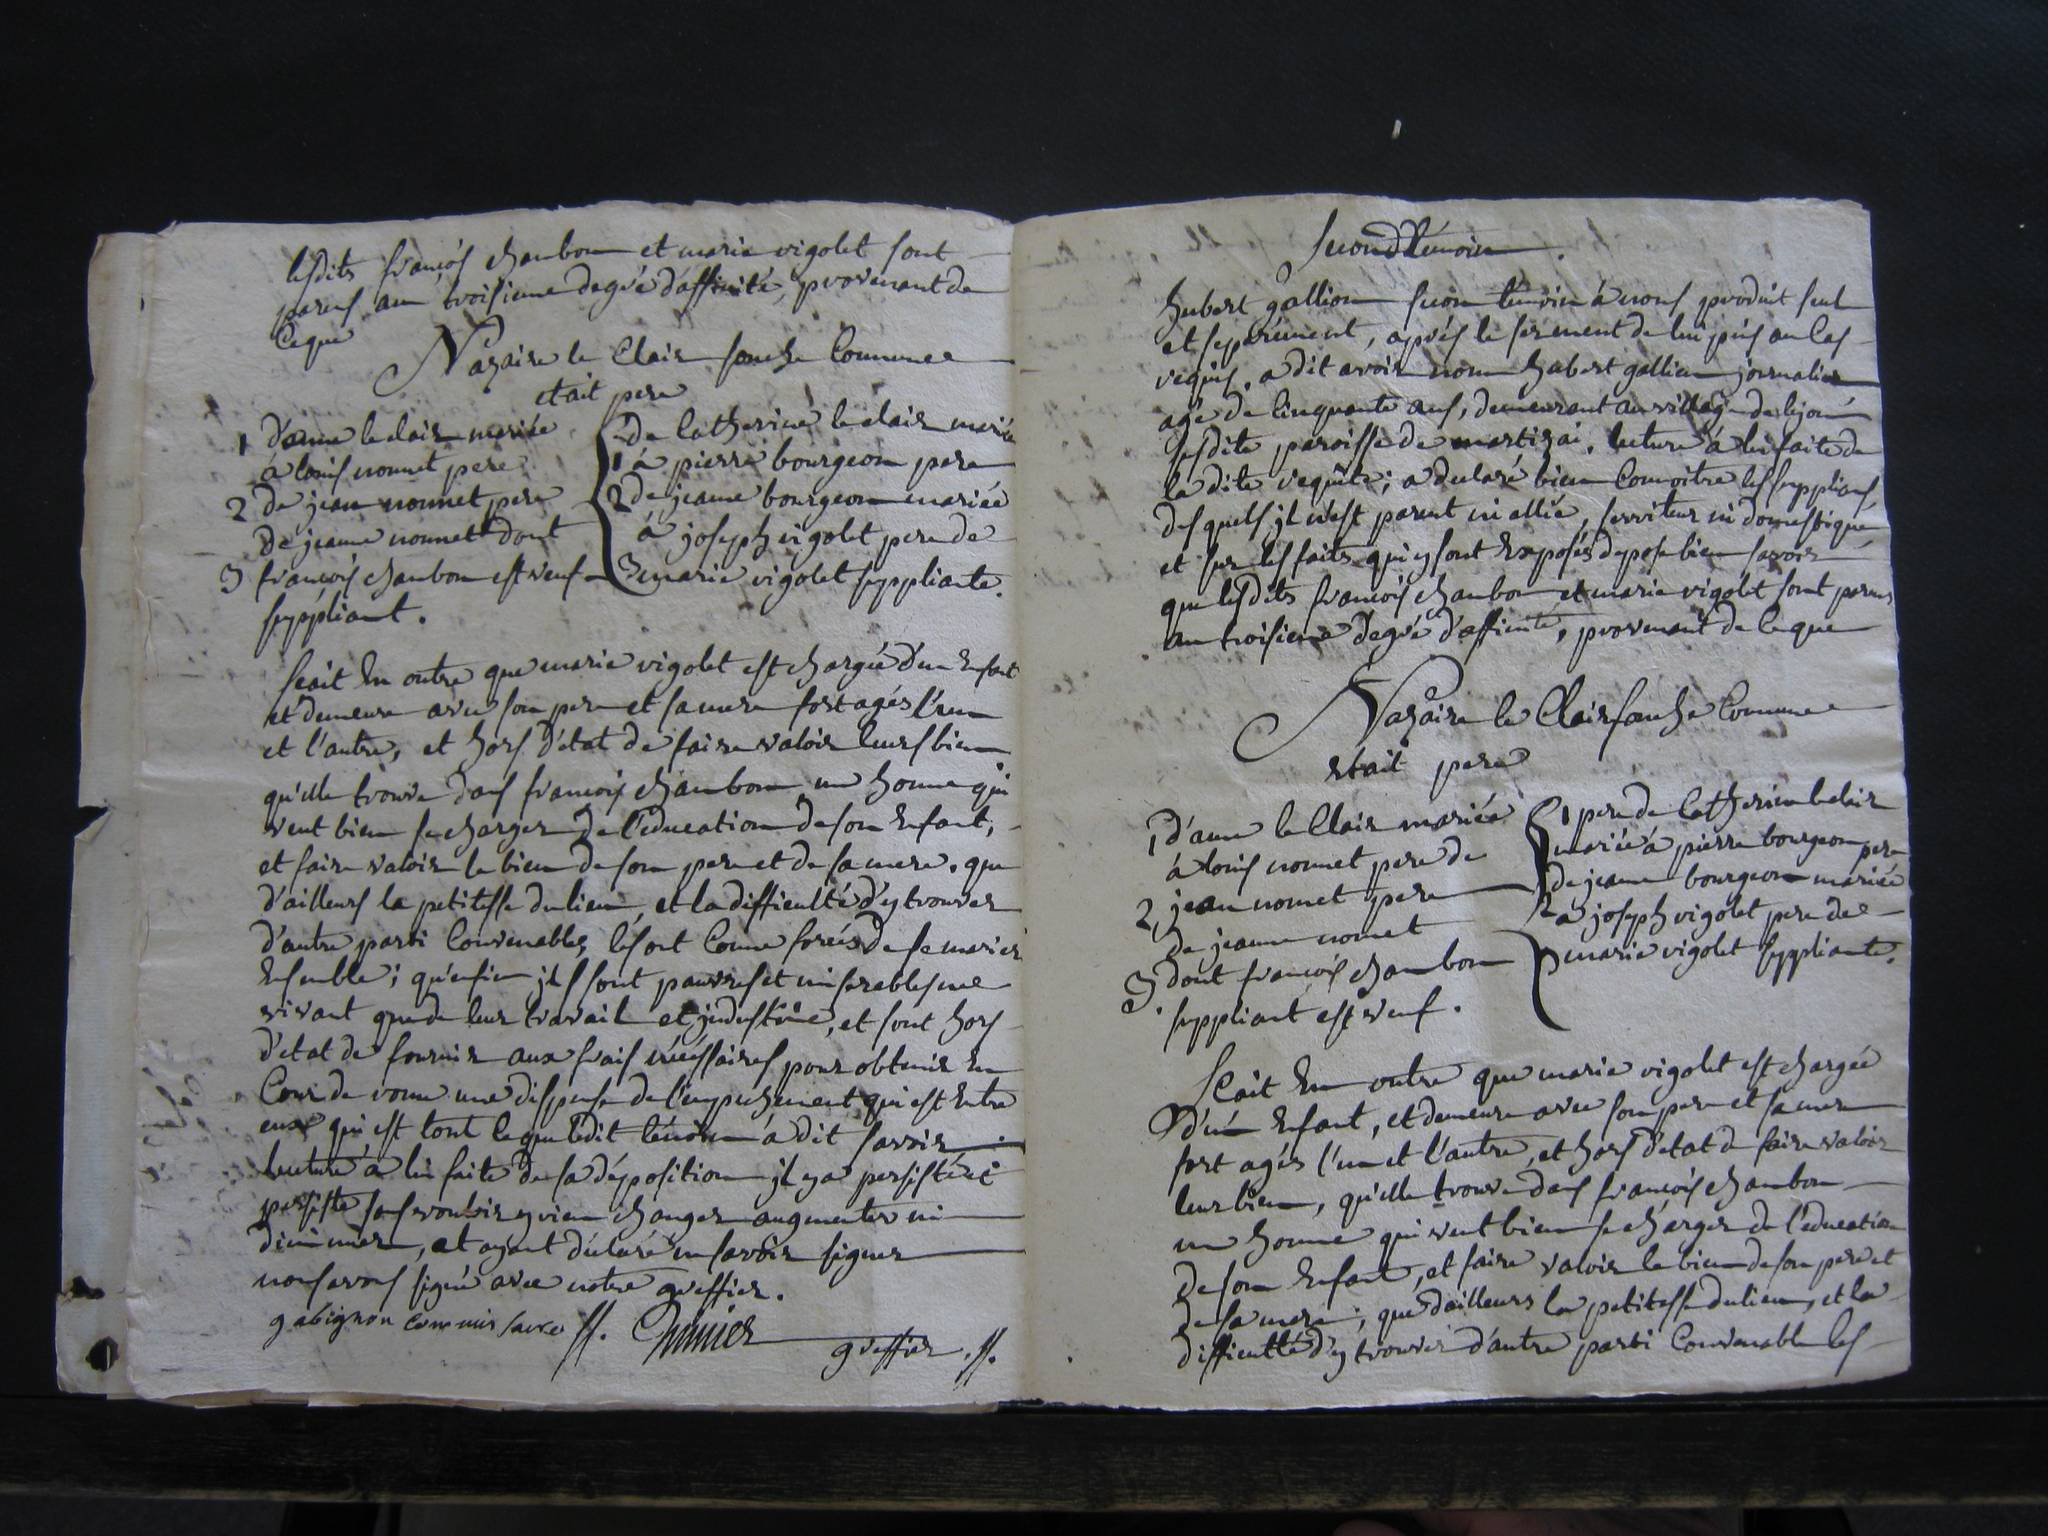 lesdits françois chambon et marie vigolet sont
parens au troisieme degré d'affinité, provenant de
ce que
Nazaire le Clair souche Commune
etait pere
1 d'anne le clair mariée
à louis nonnet pere
2 de jean nonnet pere
de jeanne nonnet dont
3 françois chambon est veuf
suppliant.
de Catherine le clair mariée
1 à pierre bourgeon pere
2 de jeanne bourgeon mariée
à joseph vigolet pere de
3 marie vigolet suppliante.
scait En outre que marie vigolet est chargée d'un Enfant
et demeure avec son pere et sa mere fort agés l'un
et l'autre, et hors d'etat de faire valoir leurs bien
qu'elle trouve dans françois chambon un homme qui
veut bien se charger de l'education de son Enfant,
et faire valoir le bien de son pere et de sa mere. que
d'ailleurs la petitesse du lieu et la difficulté d'y trouver
d'autre parti Convenables, les ont Comme forcés de se marier
Ensemble; qu'enfin jls sont pauvres et miserables ne
vivant que de leur travail et jndustrie, et sont hors
d'etat de fournir aux frais nécéssaires pour obtenir En
Cour de rome une dispense de l'empechement qui est Entre
eux qui est tout ce que ledit témoin a dit savoir
lecture à lui faite de sa déposition jl y a persisté et
persiste sans vouloir y rien changer augmenter ni
diminuer, et ayant déclaré ne savoir signer
nous avons signé avec notre greffier.
gabignon commissaire ff. Chunier
greffier .ff.
second témoin.
hubert gallion second témoin à nous produit seul
et séparément, aprés le serment de lui pris au Cas
requis, a dit avoir nom hubert gallion journalier
agé de Cinquante ans, demeurant au village de
susdite paroisse de martizai, lecture à lui faite de
la dite requête; a declaré bien Connoitre les supplians,
desquels jl n'est parent ni allié, serviteur ni domestique,
et sur les faits qui y sont Exposés depose bien savoir
que lesdits françois chambon et marie vigolet sont parens
au troisieme degré d'affinité, provenant de ce que
Nazaire le Clair souche Commune
etait pere
1 d'anne le Clair mariée
à louis nonnet pere de
2 jean nonnet pere
de jeanne nonnet
3 dont françois chambon
suppliant est veuf.
1 pere de Catherine le clair
mariée à pierre bourgeon pere
de jeanne bourgeon mariée
2 à joseph vigolet pere de
3 marie vigolet suppliante.
Scait En outre que marie vigolet est chargée
d'un Enfant, et demeure avec son pere et sa mere
fort agés l'un et l'autre, et hors d'etat de faire valoir
leur bien, qu'elle trouve dans françois chambon
un homme qui veut bien se charger de l'education
de son Enfant, et faire valoir le bien de son pere et
de sa mere; que d'ailleurs la petitesse du lieu, et la
difficulté d'y trouver d'autre parti Convenable les